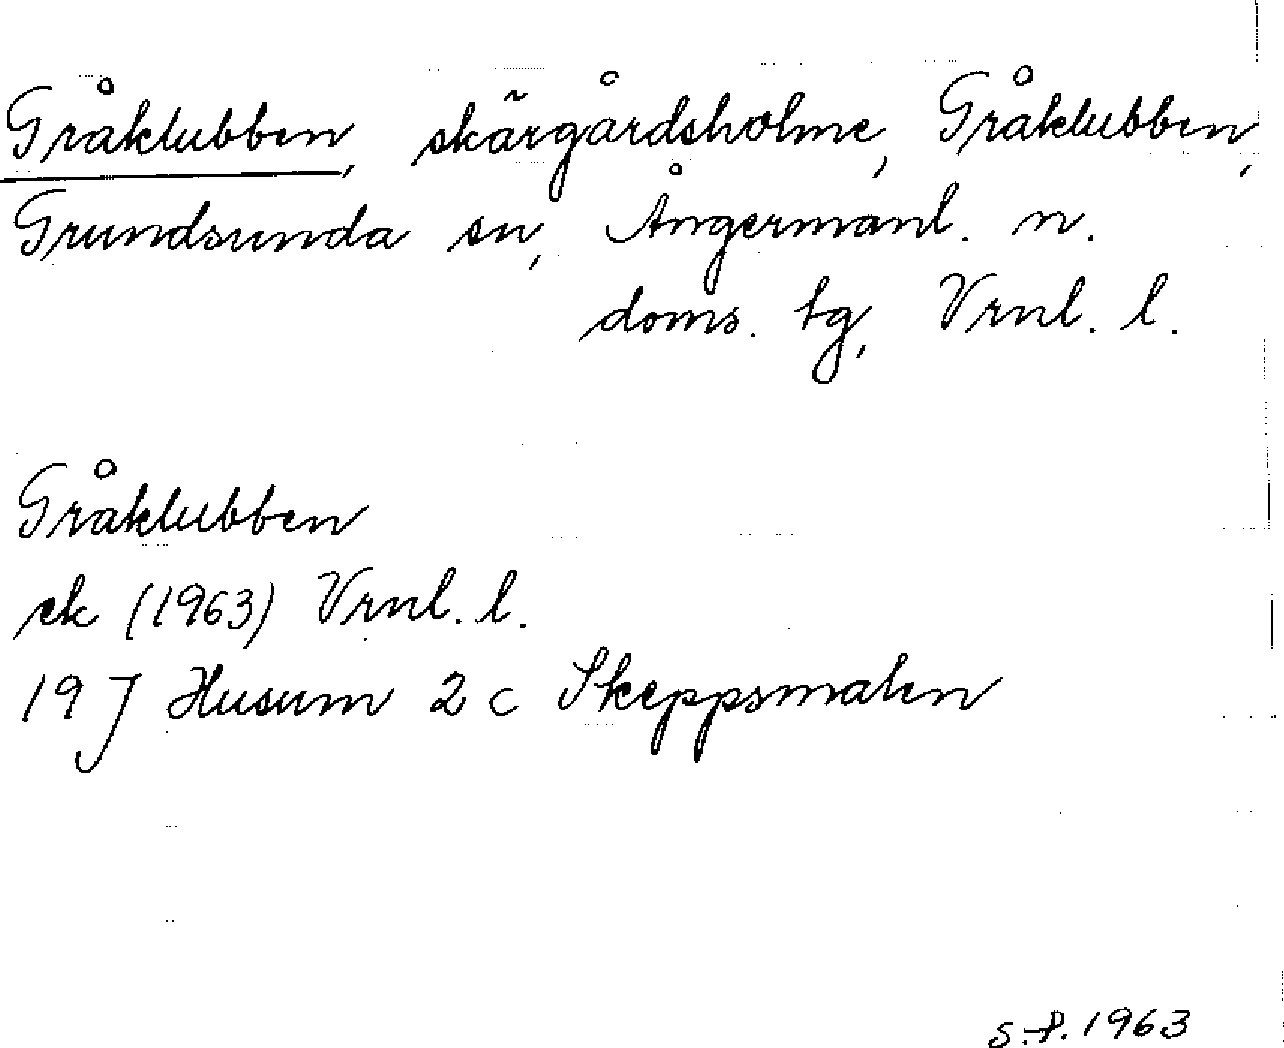 Gråklubben, skärgårdsholme, Gråklubben,
Grundsunda sn, Ångermanl. n.
doms. tg, Vrnl. l.
Gråklubben
ek (1963) Vrnl. l.
19 J Husum 2 c Skeppsmalen
S.-P. 1963